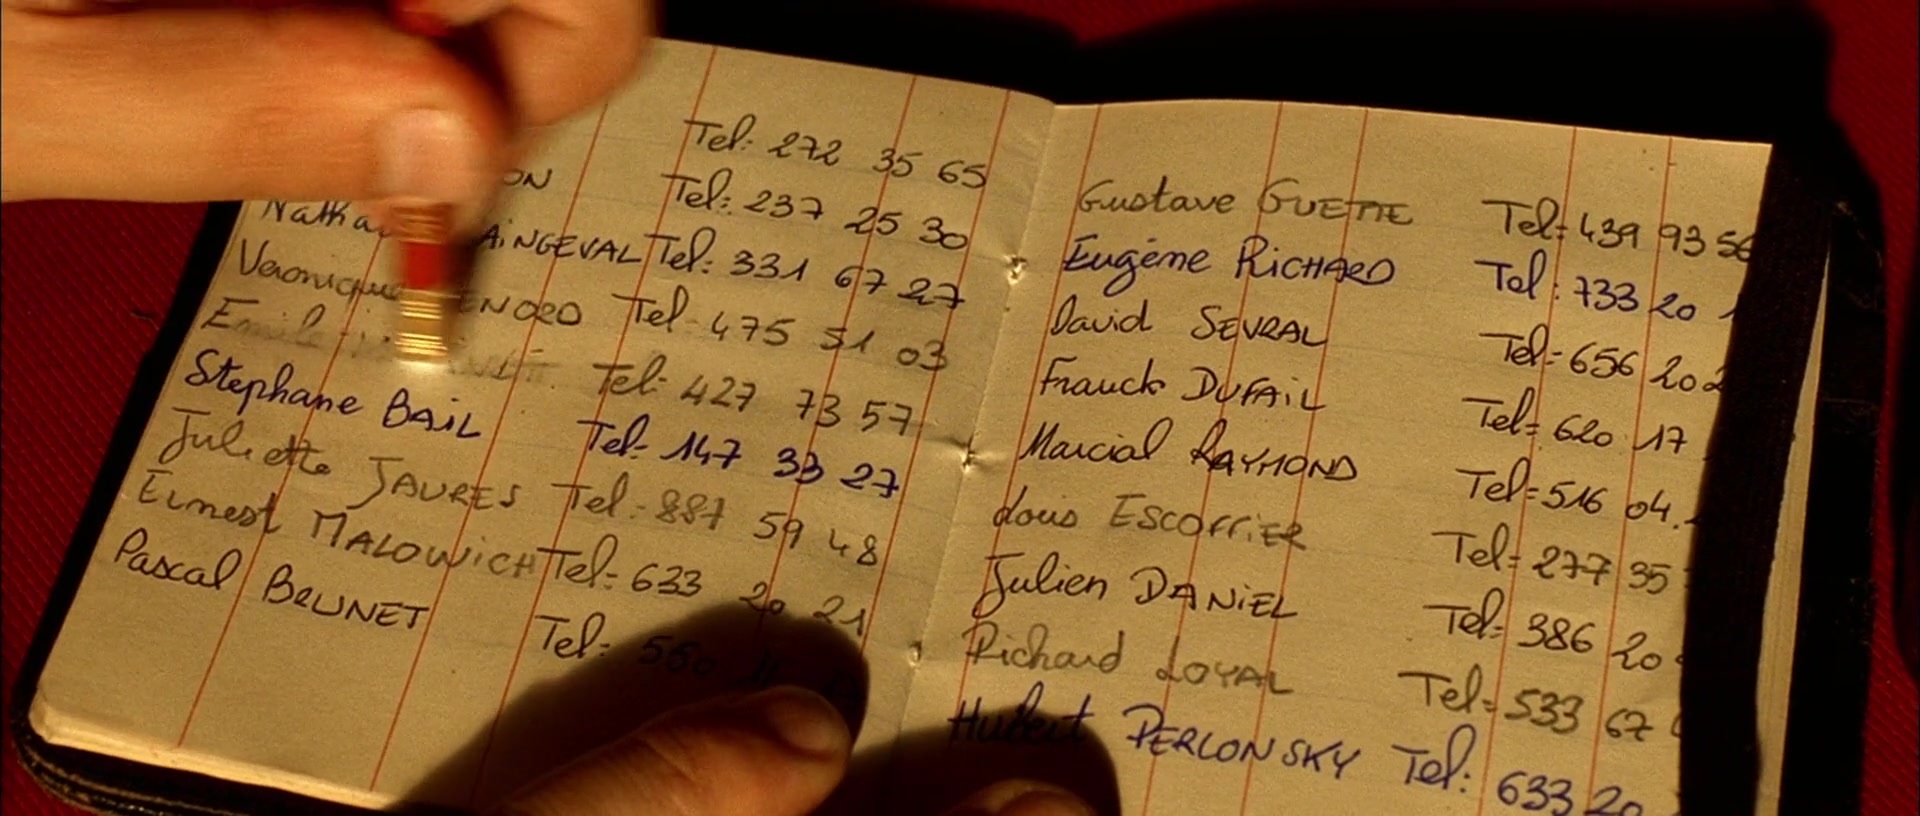 Tel: 272 35 65
ON Tel: 237 25 30
AINGEVAL Tel: 331 67 27
Veronique ENORD Tel 475 51 03
Emile Tel: 427 73 57
Stephane BAIL Tel: 147 33 27
Juliette JAURES Tel: 887 59 48
Ernest MALOWICH Tel: 633 20 21
Pascal BRUNET Tel: 550
Gustave GUETTE Tel: 439 93 56
Eugéne RICHARD Tel: 733 20 1
David SEVRAL Tel: 656 20 2
Franck DUFAIL Tel: 620 17
Marcial RAYMOND Tel: 516 04
Louis ESCOFFIER Tel: 277 35
Julien DANIEL Tel: 386 20
Richard LOYAL Tel: 533 67
Hubert PERLONSKY Tel: 633 20